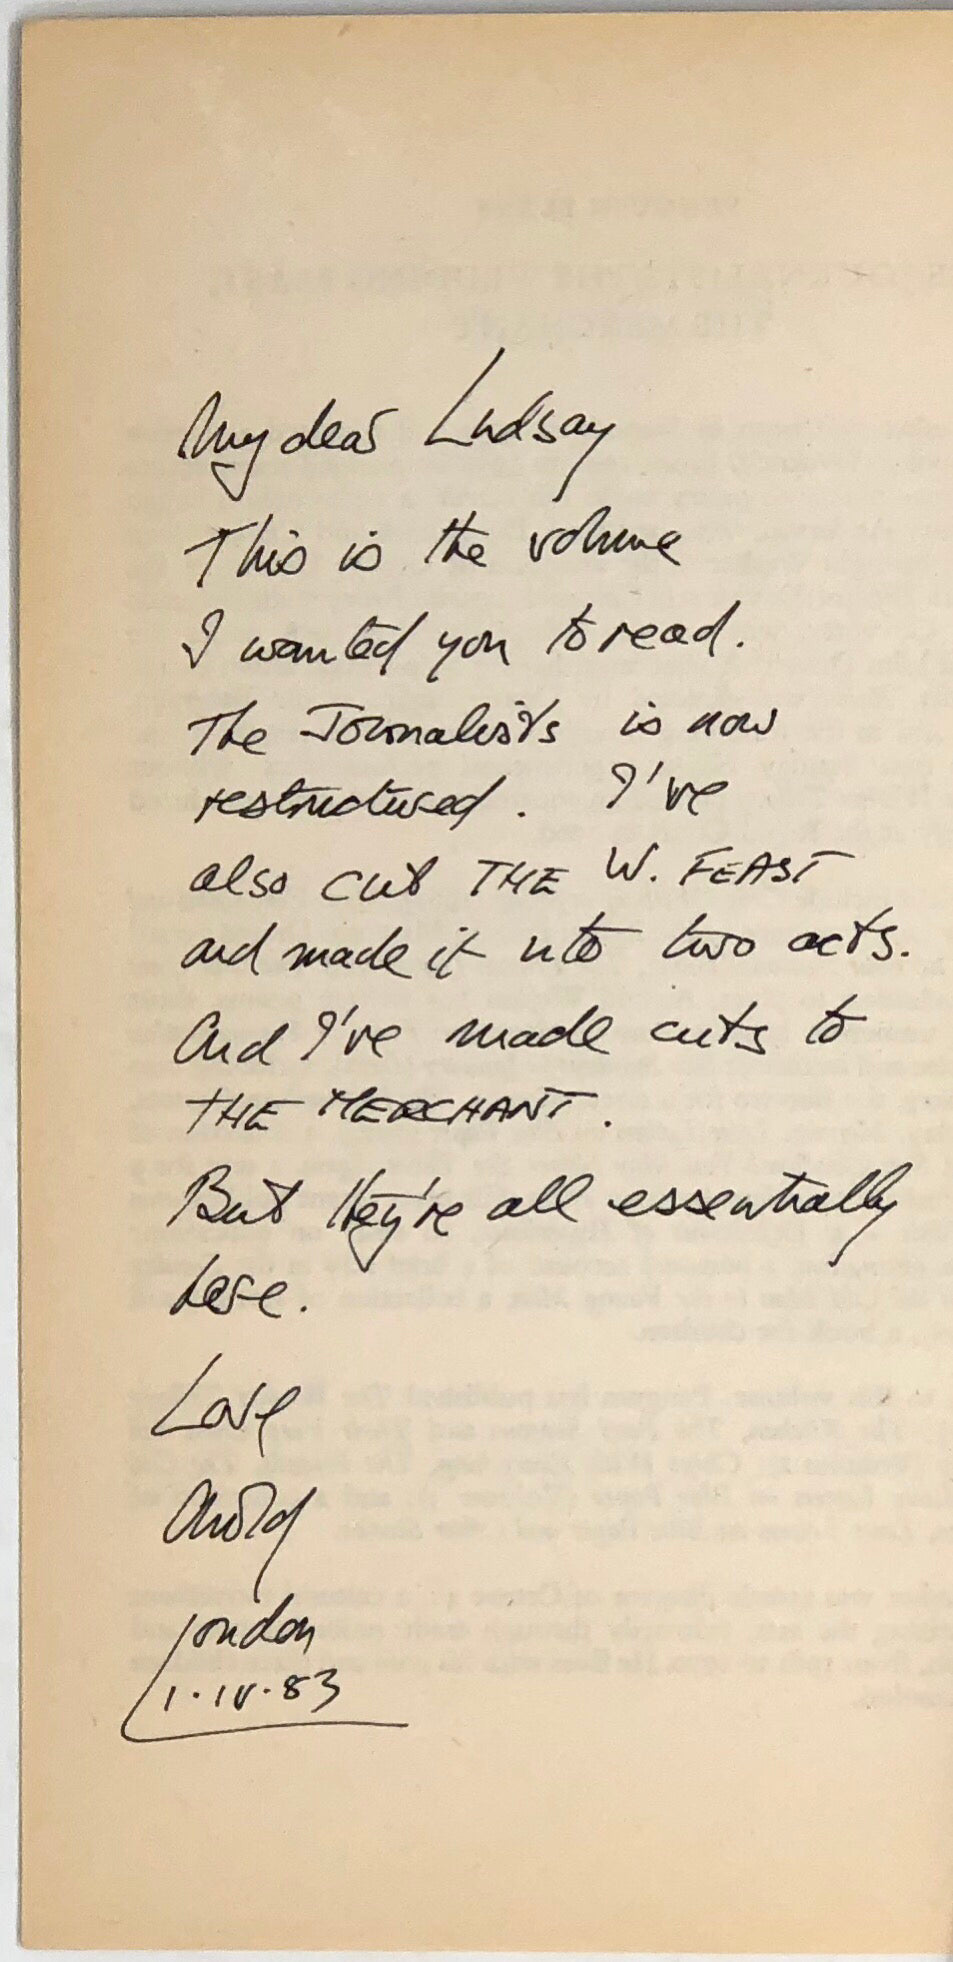 My dear Lindsay
This is the volume
I wanted you to read.
The Journalists is now
restructured. I've
also cut THE W. FEAST
and made it into two acts.
And I've made cuts to
THE MERCHANT.
But they're all essentially
here.
Love
Arnold
London
1.IV.83